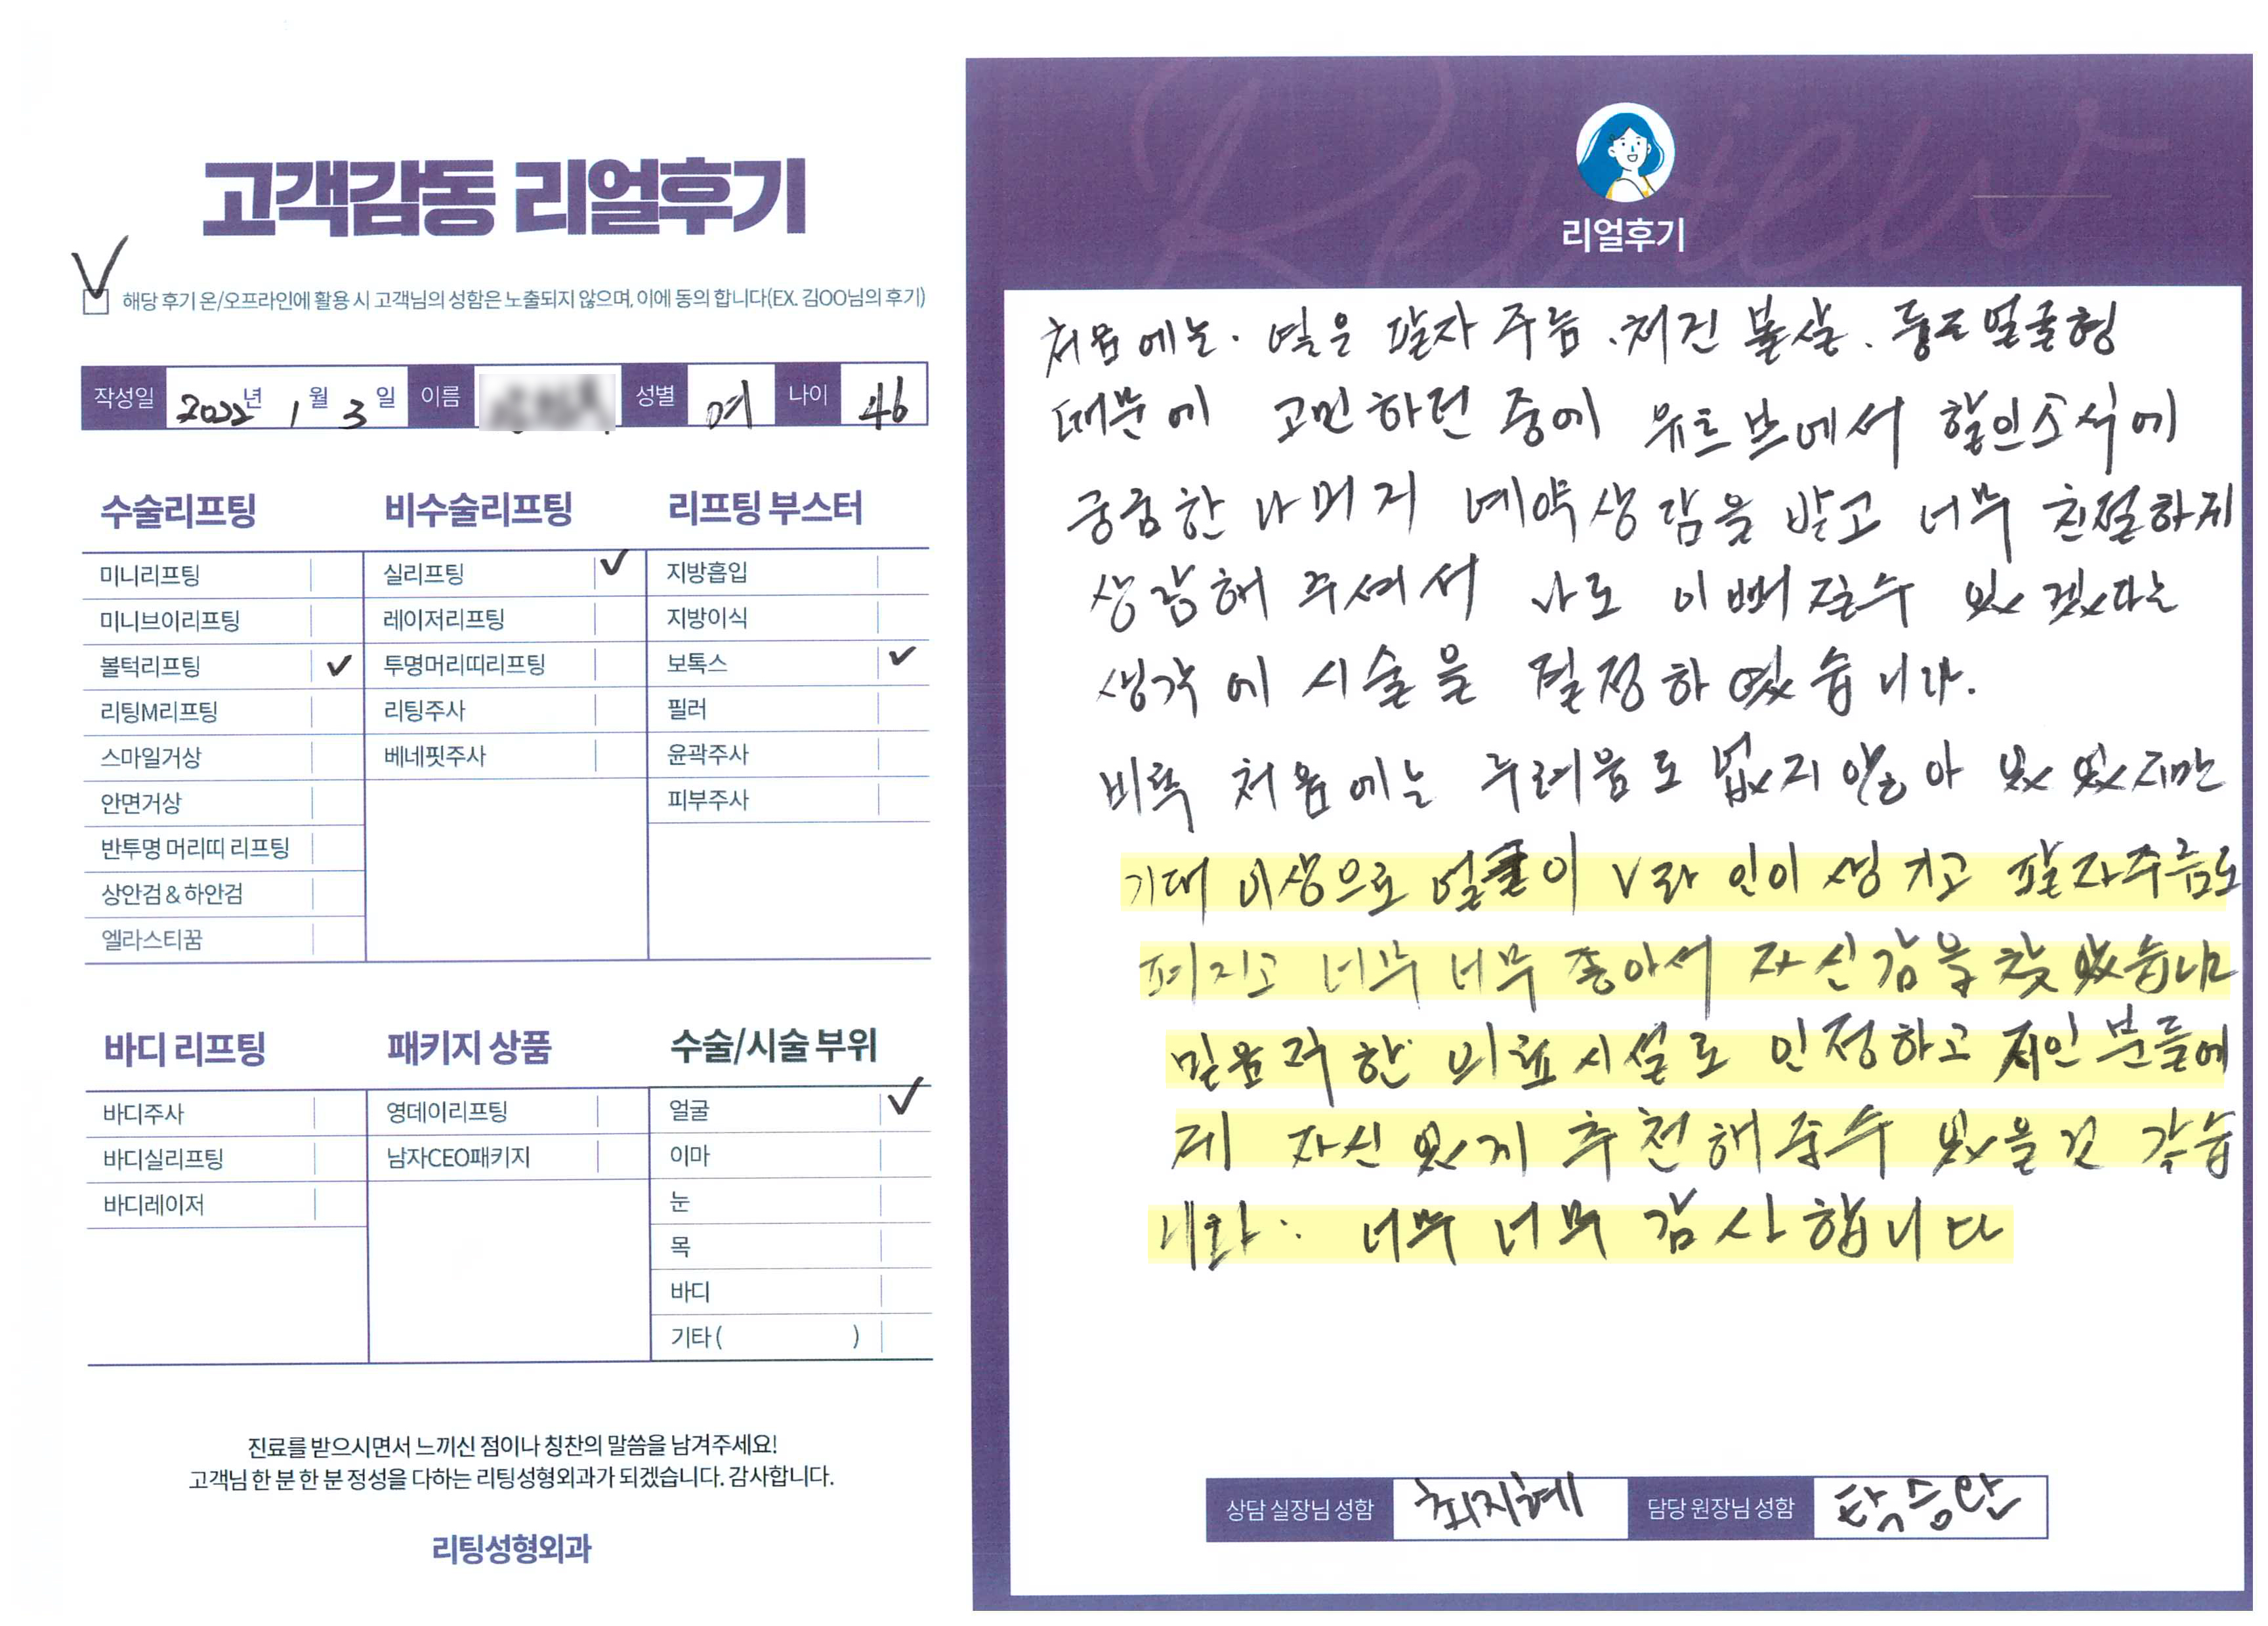 고객감동 리얼후기
해당 후기 온/오프라인에 활용 시 고객님의 성함은 노출되지 않으며, 이에 동의 합니다(EX. 김OO님의 후기)
작성일 2022년 1월 3일 이름 성별 여 나이 46
수술리프팅
미니리프팅
미니브이리프팅
볼턱리프팅
리팅M리프팅
스마일거상
안면거상
반투명 머리띠 리프팅
상안검 & 하안검
엘라스티꿈
비수술리프팅
실리프팅
레이저리프팅
투명머리띠리프팅
리팅주사
베네핏주사
리프팅 부스터
지방흡입
지방이식
보톡스
필러
윤곽주사
피부주사
바디 리프팅
바디주사
바디실리프팅
바디레이저
패키지 상품
영데이리프팅
남자CEO패키지
수술/시술 부위
얼굴
이마
눈
목
바디
기타 ( )
진료를 받으시면서 느끼신 점이나 칭찬의 말씀을 남겨주세요!
고객님 한 분 한 분 정성을 다하는 리팅성형외과가 되겠습니다. 감사합니다.
리팅성형외과
Review
리얼후기
처음에는. 옅은 팔자 주늠. 처진 볼살. 얼굴형
때문에 고민하던 중에 유트브에서 할인소식에
궁금한 나머지 예약상담을 받고 너무 친절하게
상담해 주셔서 나도 이뻐질수 있겠다는
생각에 시술을 결정하였습니다.
비록 처음에는 두려움도 없지 않아 있었지만
기대 이상으로 얼굴이 V라인이 생기고 팔자주름도
펴지고 너무 너무 좋아서 자신감을 찾았습니다
믿음직한 의료시설로 인정하고 지인분들에
게 자신있게 추천해줄수 있을것 같습
니다. 너무 너무 감사합니다
상담 실장님 성함 최지혜 담당 원장님 성함 탁승안